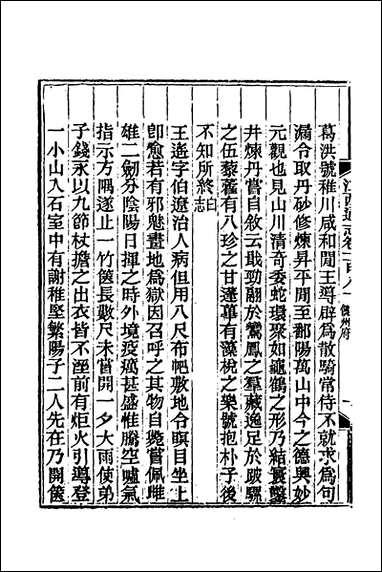 江西通志卷一百八十 饒州府
葛洪號稚川咸和間王導辟爲散騎常侍不就求爲句
漏令取丹砂修煉昇平間至鄱陽萬山中今之德興妙
元觀也見山川清奇委蛇環聚如龜鶴之形乃結寰鑿
井煉丹嘗自敘云戢勁翮於鷦鳳之羣藏逸足於跛驢
之伍藜藿有八珍之甘蓬蓽有藻梲之樂號抱朴子後
不知所終白志
王遙字伯遼治人病但用八尺布帊敷地令瞑目坐上
卽愈若有邪魅畫地爲獄因召呼之其物自斃嘗佩雌
雄二劒分陰陽日揮之時外境疫癘甚盛惟騰空噓氣
指示方隅遂止一竹篋長數尺未嘗開一夕大雨使弟
子錢永以九節杖擔之出衣皆不溼前有炬火引導登
一小山入石室中有謝稚堅繁陽子二人先在乃開篋